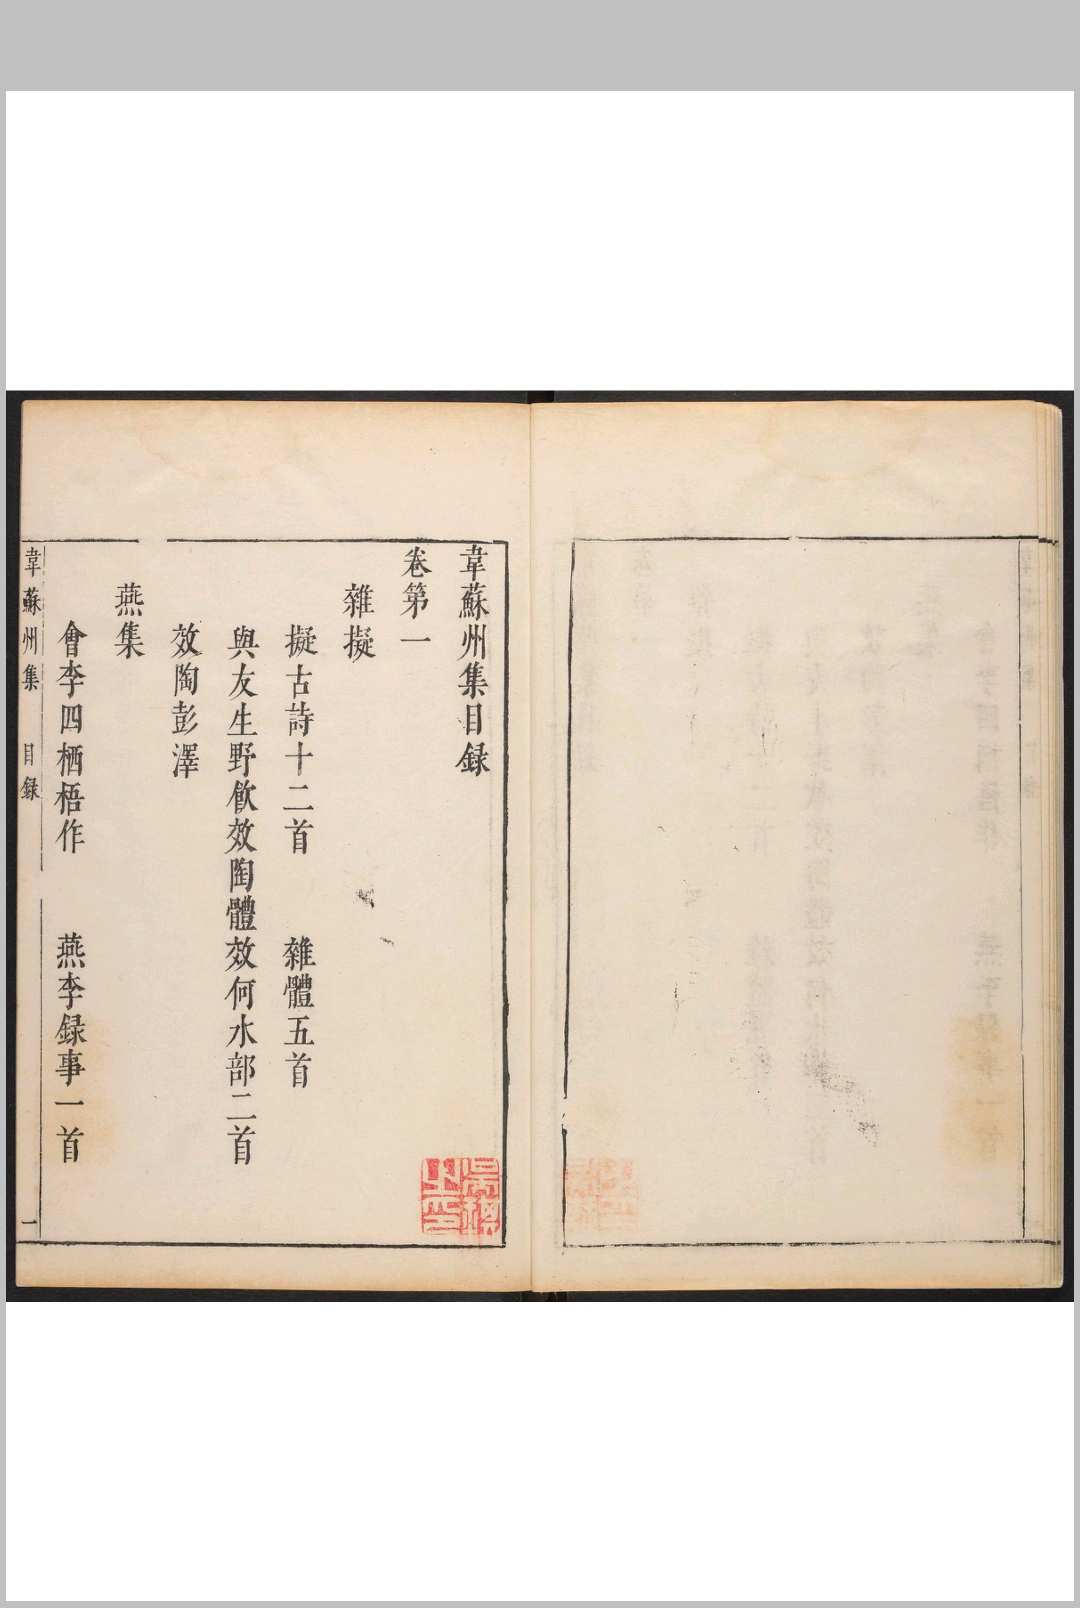 韋蘇州集目録
卷第一
雜擬
擬古詩十二首　雜體五首
與友生野飲效陶體效何水部二首
效陶彭澤
燕集
會李四栖梧作　燕李録事一首
韋蘇州集　目録　一